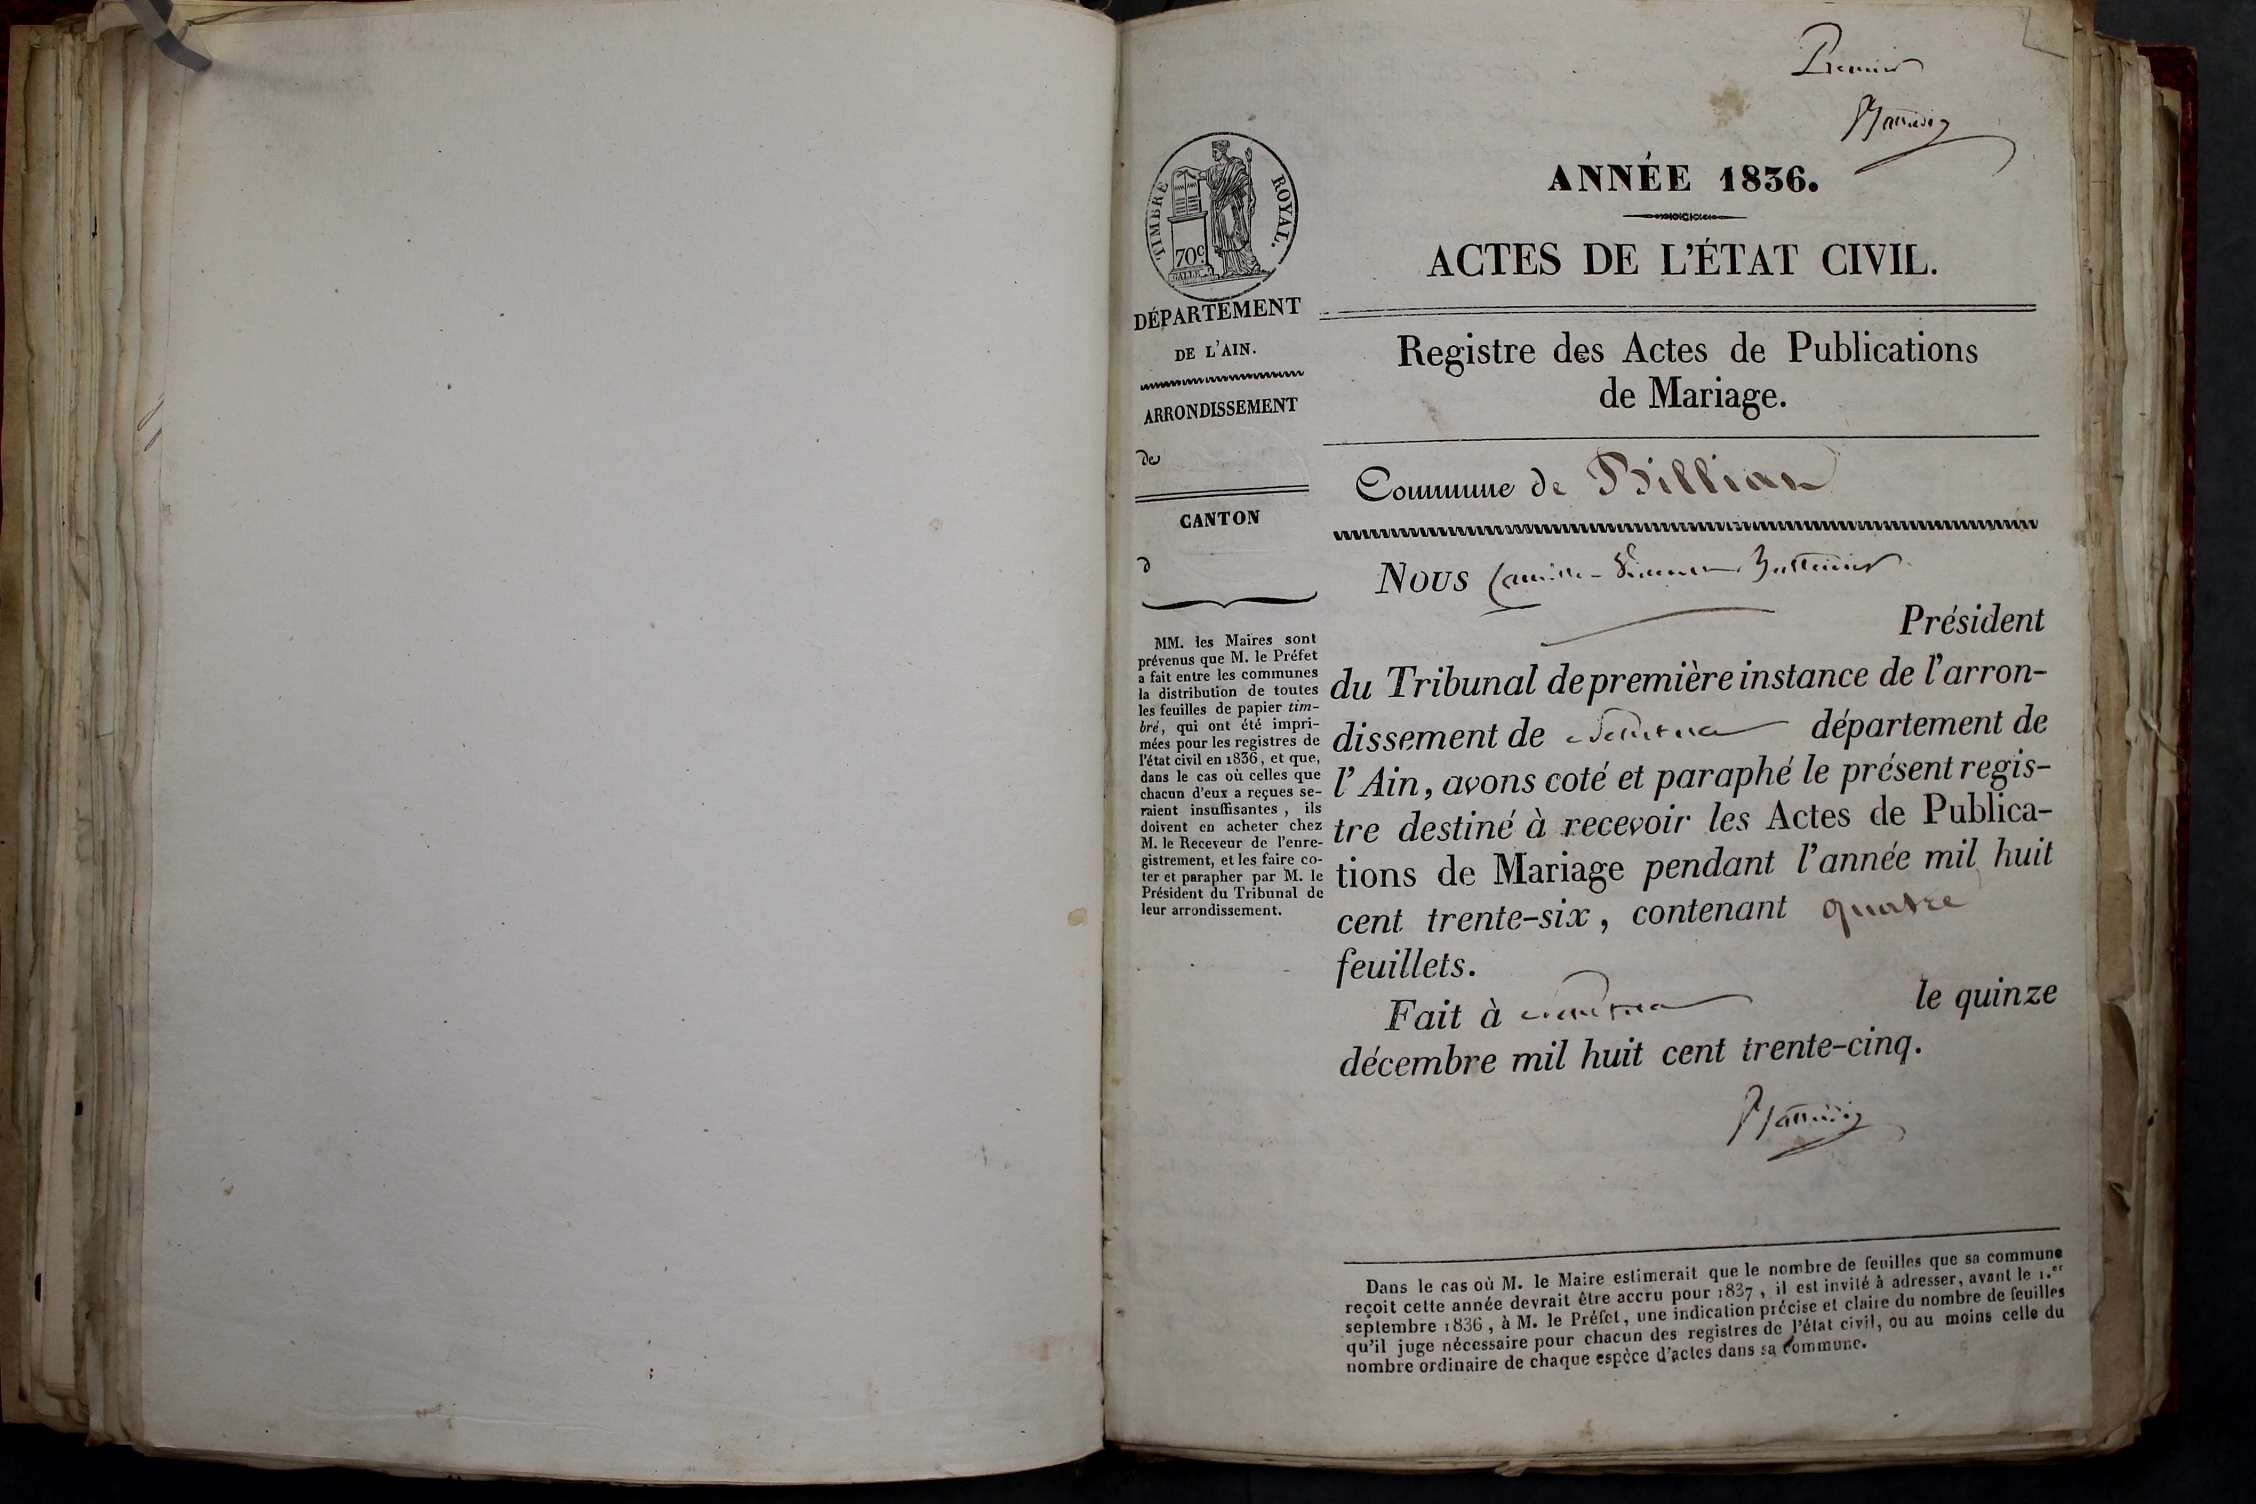 Premier
ANNÉE 1836.
ACTES DE L'ÉTAT CIVIL.
TIMBRE ROYAL.
70c
GALLE
DÉPARTEMENT
DE L'AIN.
ARRONDISSEMENT
de
CANTON
d
MM. les Maires sont
prévenus que M. le Préfet
a fait entre les communes
la distribution de toutes
les feuilles de papier tim-
bré, qui ont été impri-
mées pour les registres de
l'état civil en 1836, et que,
dans le cas où celles que
chacun d'eux a reçues se-
raient insuffisantes, ils
doivent en acheter chez
M. le Receveur de l'enre-
gistrement, et les faire co-
ter et parapher par M. le
Président du Tribunal de
leur arrondissement.
Registre des Actes de Publications
de Mariage.
Commune de Billiat
Nous Camille
Président
du Tribunal de première instance de l'arron-
dissement de Nantua département de
l'Ain, avons coté et paraphé le présent regis-
tre destiné à recevoir les Actes de Publica-
tions de Mariage pendant l'année mil huit
cent trente-six, contenant quatre
feuillets.
Fait à Nantua le quinze
décembre mil huit cent trente-cinq.
Dans le cas où M. le Maire estimerait que le nombre de feuilles que sa commune
reçoit cette année devrait être accru pour 1837, il est invité à adresser, avant le 1.er
septembre 1836, à M. le Préfet, une indication précise et claire du nombre de feuilles
qu'il juge nécessaire pour chacun des registres de l'état civil, ou au moins celle du
nombre ordinaire de chaque espèce d'actes dans sa commune.